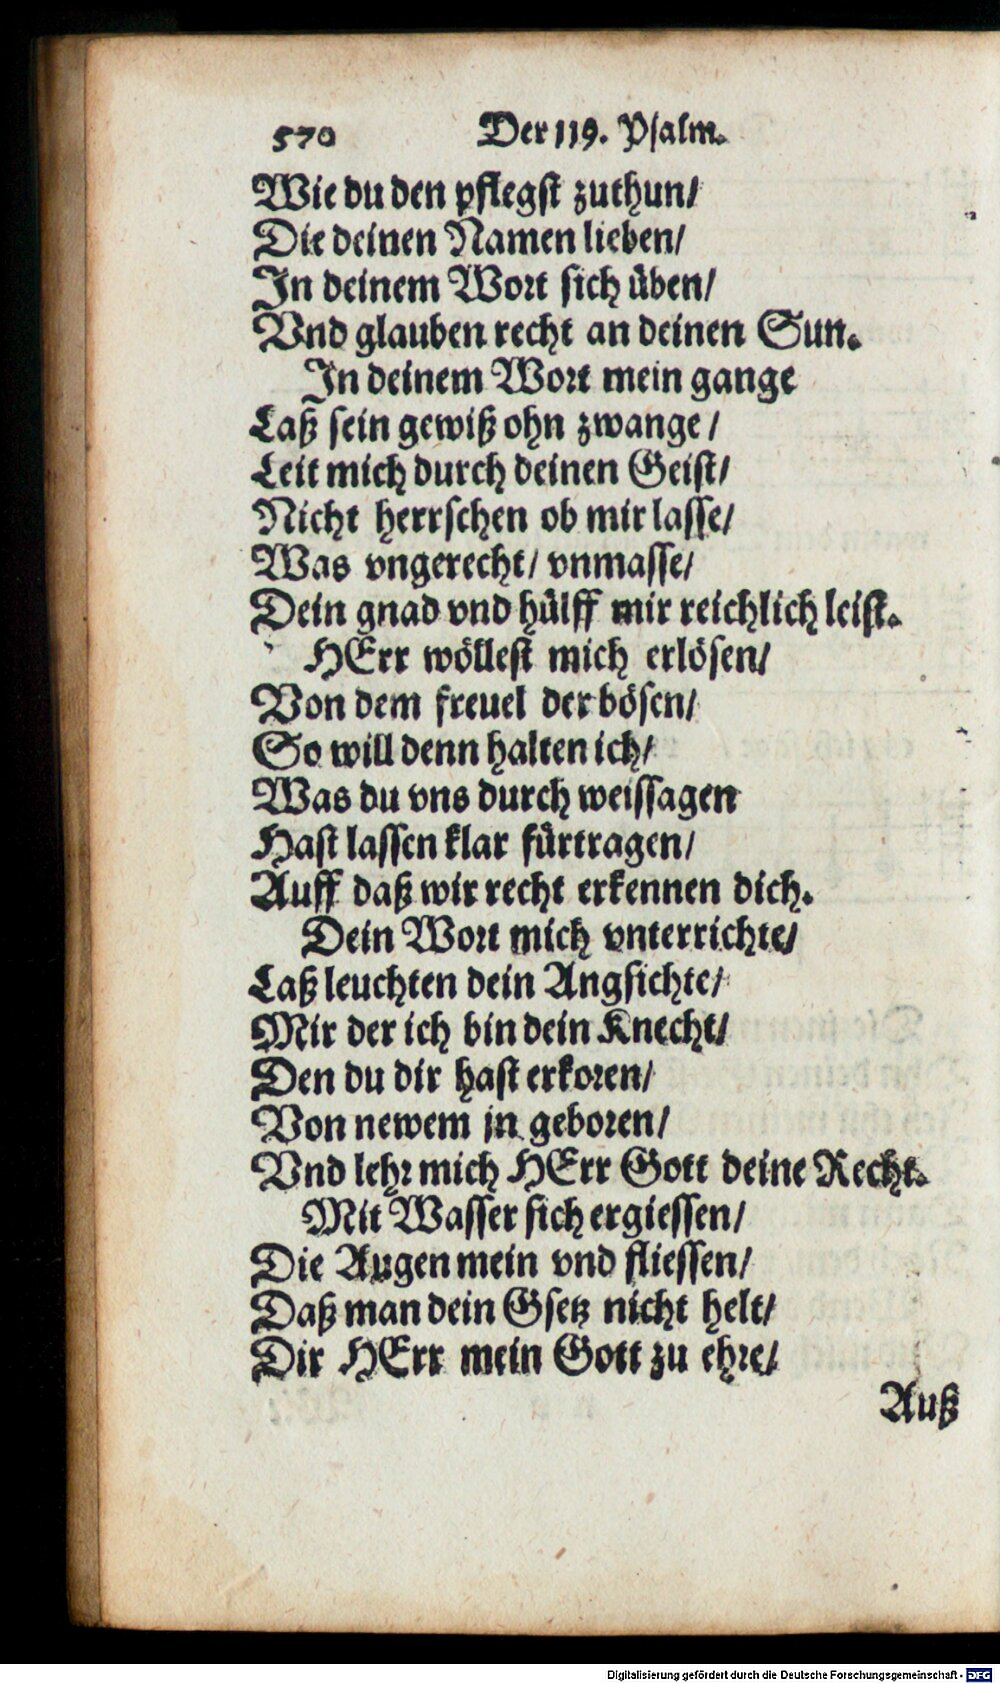 570 Der 119. Psalm.
Wie du den pflegst zuthun/
Die deinen Namen lieben/
In deinem Wort sich üben/
Vnd glauben recht an deinen Sun.
In deinem Wort mein gange
Laß sein gewiß ohn zwange/
Leit mich durch deinen Geist/
Nicht herrschen ob mir lasse/
Was vngerecht/ vnmasse/
Dein gnad vnd hülff mir reichlich leist.
HErr wöllest mich erlösen/
Von dem freuel der bösen/
So will denn halten ich/
Was du vns durch weissagen
Hast lassen klar fürtragen/
Auff daß wir recht erkennen dich.
Dein Wort mich vnterrichte/
Laß leuchten dein Angsichte/
Mir der ich bin dein Knecht/
Den du dir hast erkoren/
Von newem in geboren/
Vnd lehr mich HErr Gott deine Recht.
Mit Wasser sich ergiessen/
Die Augen mein vnd fliessen/
Daß man dein Gsetz nicht helt/
Dir HErr mein Gott zu ehre/
Auß
Digitalisierung gefördert durch die Deutsche Forschungsgemeinschaft - DFG